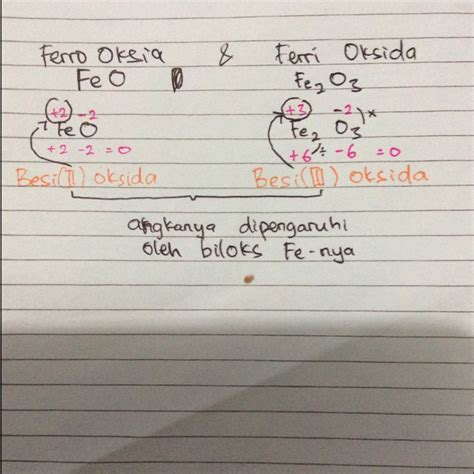 Ferro Oksia & Ferri Oksida
FeO Fe₂O₃
+2 -2 +3 -2
FeO Fe₂ O₃
+2 -2 = 0 +6 -6 = 0
Besi(II) oksida Besi(III) oksida
angkanya dipengaruhi
oleh biloks Fe-nya